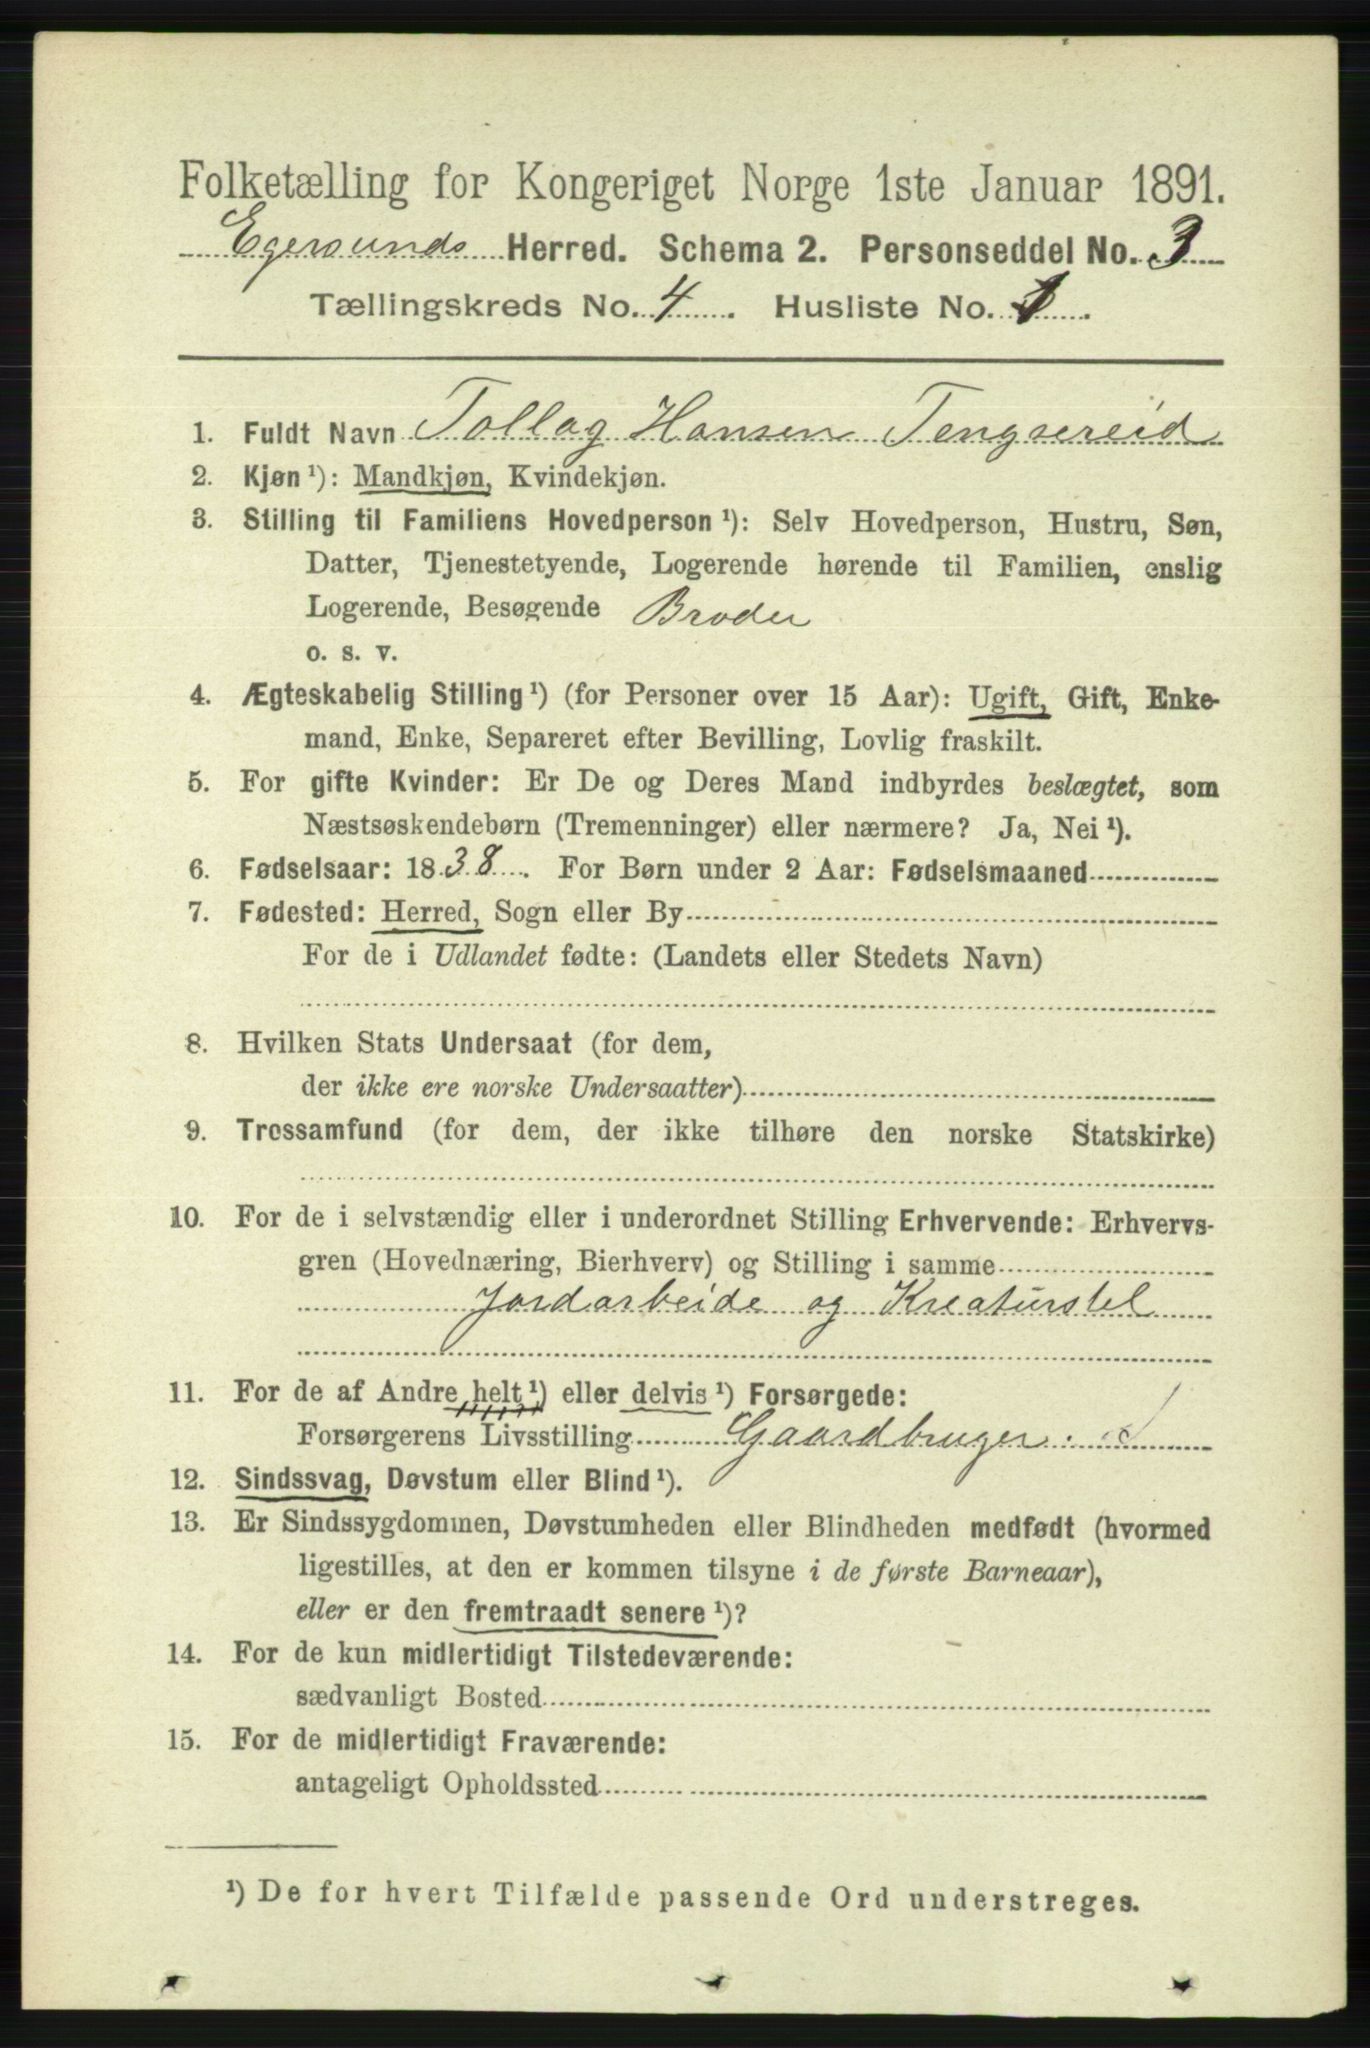 Folketælling for Kongeriget Norge 1ste Januar 1891.
Egersunds Herred. Schema 2. Personseddel No. 3
Tællingskreds No. 4. Husliste No. 1.
1. Fuldt Navn Tollag Hansen Tengsereid
2. Kjøn ¹): Mandkjøn, Kvindekjøn.
3. Stilling til Familiens Hovedperson ¹): Selv Hovedperson, Hustru, Søn,
Datter, Tjenestetyende, Logerende hørende til Familien, enslig
Logerende, Besøgende Broder
o. s. v.
4. Ægteskabelig Stilling ¹) (for Personer over 15 Aar): Ugift, Gift, Enke-
mand, Enke, Separeret efter Bevilling, Lovlig fraskilt.
5. For gifte Kvinder: Er De og Deres Mand indbyrdes beslægtet, som
Næstsøskendebørn (Tremenninger) eller nærmere? Ja, Nei ¹).
6. Fødselsaar: 1838. For Børn under 2 Aar: Fødselsmaaned
7. Fødested: Herred, Sogn eller By
For de i Udlandet fødte: (Landets eller Stedets Navn)
8. Hvilken Stats Undersaat (for dem,
der ikke ere norske Undersaatter)
9. Trossamfund (for dem, der ikke tilhøre den norske Statskirke)
10. For de i selvstændig eller i underordnet Stilling Erhvervende: Erhvervs-
gren (Hovednæring, Bierhverv) og Stilling i samme
Jordarbeide og Kreaturstel
11. For de af Andre helt ¹) eller delvis ¹) Forsørgede:
Forsørgerens Livsstilling Gaardbruger.
12. Sindssvag, Døvstum eller Blind ¹).
13. Er Sindssygdommen, Døvstumheden eller Blindheden medfødt (hvormed
ligestilles, at den er kommen tilsyne i de første Barneaar),
eller er den fremtraadt senere ¹)?
14. For de kun midlertidigt Tilstedeværende:
sædvanligt Bosted
15. For de midlertidigt Fraværende:
antageligt Opholdssted
¹) De for hvert Tilfælde passende Ord understreges.